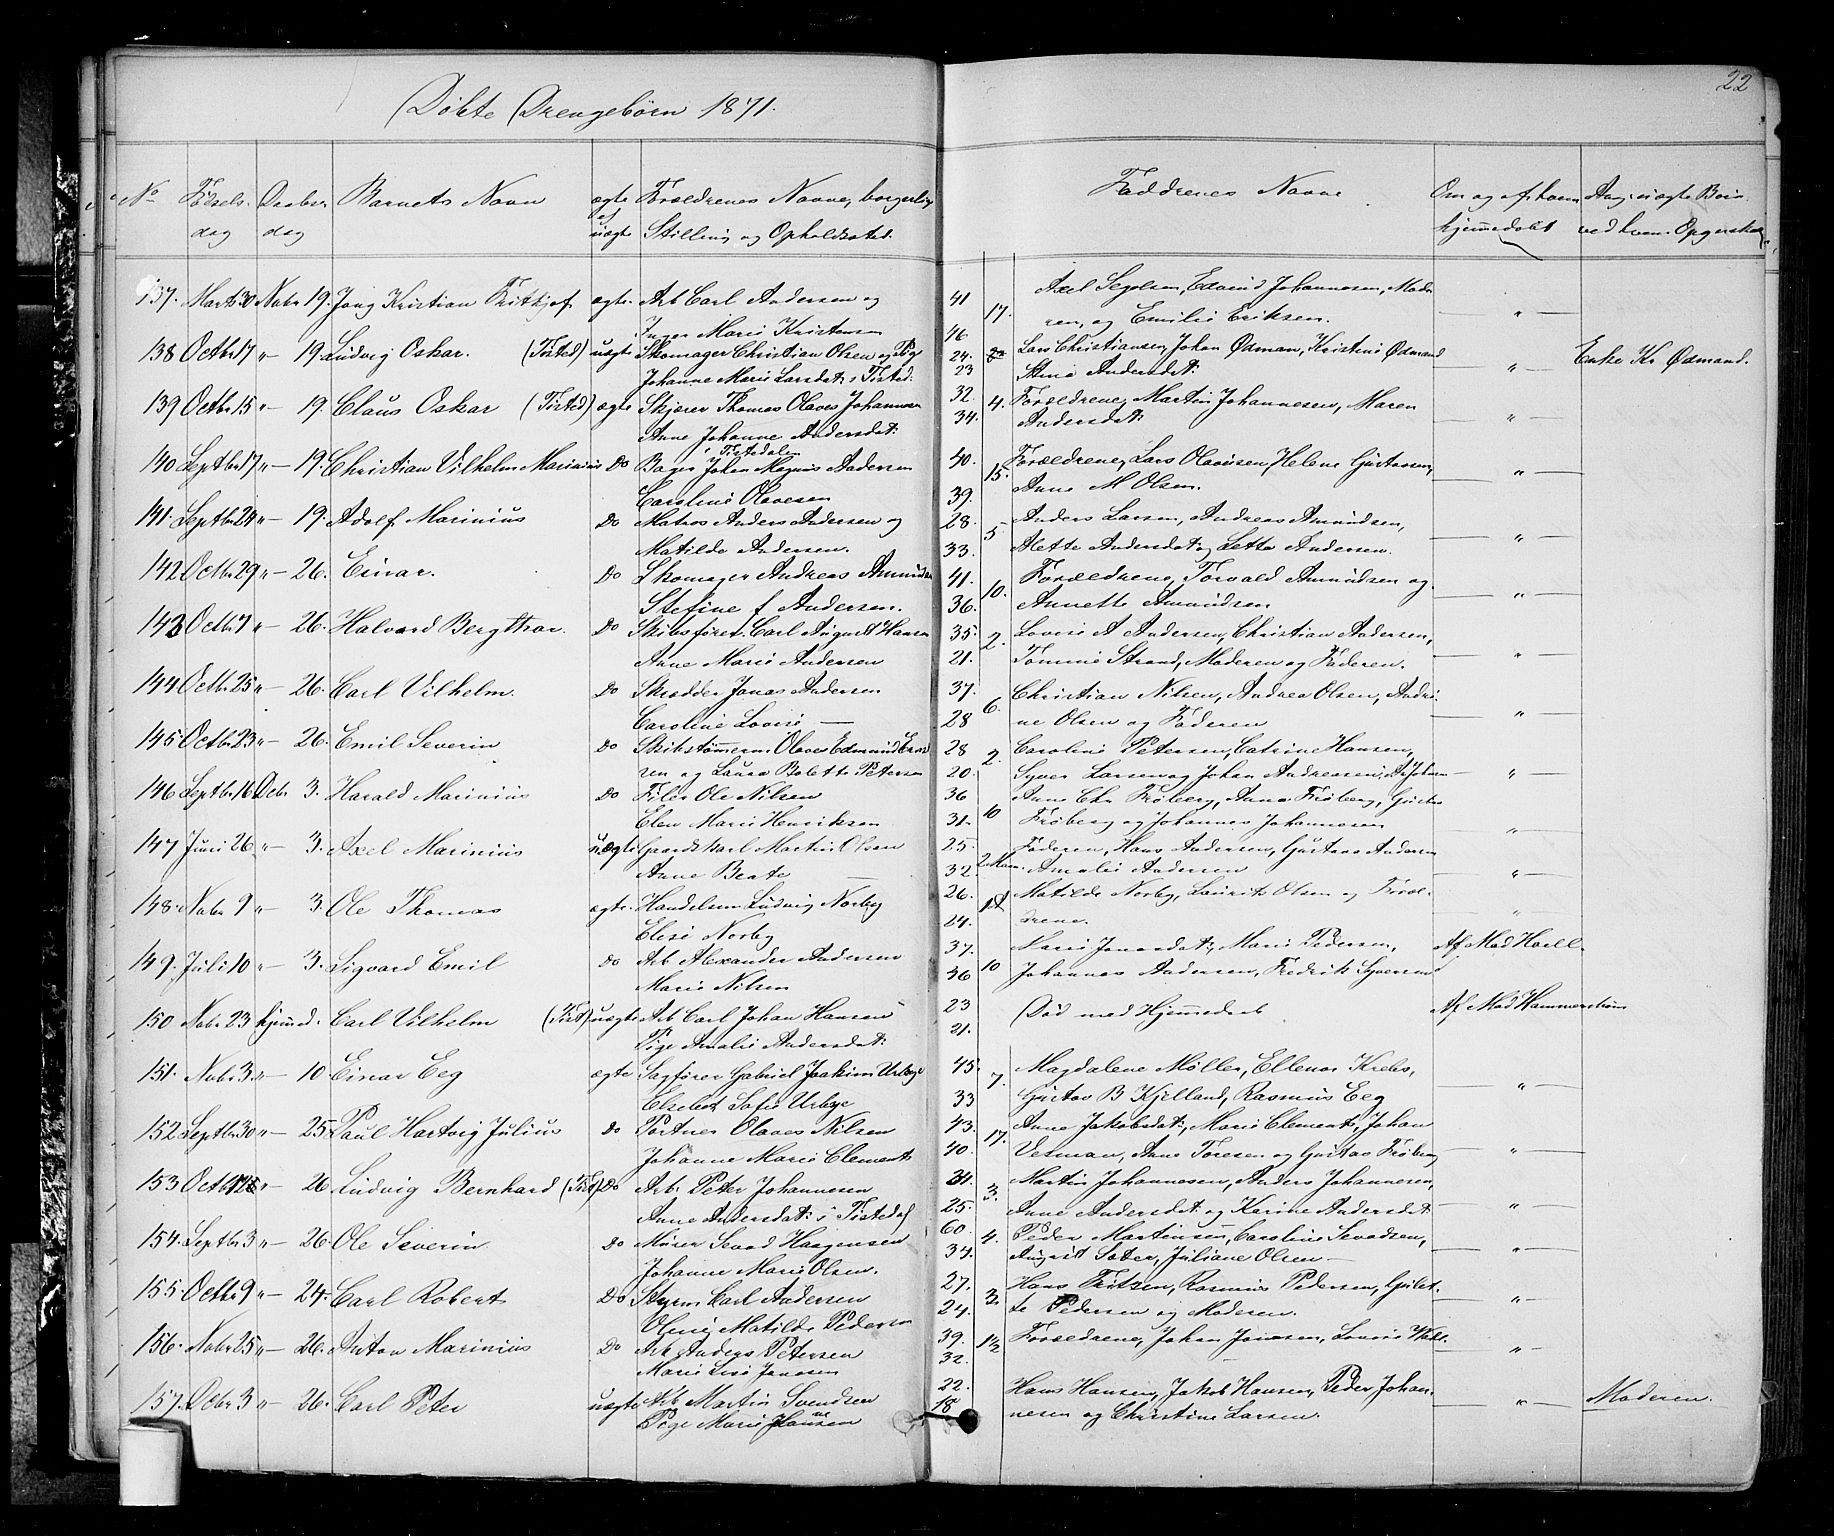 22
Døbte Drengebørn 1871.
No Fødsels- dag Daabs- dag Barnets Navn ægte el uægte Forældrenes Navne, borgerlig Stilling og Opholdssted. Faddrenes Navne Om og af hvem hjemmedøbt Ang. uægte Børn
137. Marts 30 Novbr 19. Kristian ægte. Arb Carl Andersen og 41 17. Axel Segelsen, Edvind Johannesen, Mode
Inger Marie Kristensen 46 ren, og Emilie Eriksen. "
138 Octbr 17 " 19. Ludvig Oskar. (Tisted) uægte Skomager Christian Olsen og Pig 24. Lars Christiansen, Johan Ødman, Kristine Ødmand " Enke Kr Ødmand.
Johanne Marie Larsdat i Tisted. 23 Stine Andersdat:
139 Octbr 15 " 19. Claus Oskar (Tisted) ægte Thomas Olaves Johannesen 32. 4. Forældrene, Martin Johannesen, Maren
Anne Johanne Andersdat: 34. Andersdat: "
i Tistedalen
140 Septbr 17 " 19. Christian Vilhelm Marinius Do Bager Johan Magnus Andersen 40. 15. Forældrene, Lars Olausen, Helene Gustavsen,
Caroline Olavesen 39. Anne M Olsen. "
141. Septbr 24 " 19. Adolf Marinius Do Matros Anders Andersen og 28. 5 Anders Larsen, Andreas Amundsen,
Matilde Andersen. 33. Mette Andersdat og Lette Andersen. "
142 Octbr 29 " 26. Einar. Do Skomager Andreas Amundsen 41. 10. Forældrene, Torvald Amundsen og
Stefine f Andersen. 36. Annette Amundsen "
143 Octbr 7 " 26. Halvard Bergthor. Do Skibsfører Carl August Hansen 35. 2. Lovise A Andersen, Christian Andersen,
Anne Marie Andersen 21. Tomine Strand, Moderen og Faderen. "
144 Octbr 25 " 26. Carl Vilhelm. Do Skrædder Jonas Andersen 37. 6. Christian Nilsen, Andrea Olsen, Andri
Caroline Lovise — 28 ne Olsen og Faderen "
145 Octbr 23 " 26. Emil Severin Do Skibstømmerm Olaves Edmund 28 2. Caroline Petersen, Catrine Hansen,
og Laura Bolette Petersen 20. Syver Larsen og Johan Andreasen, "
146 Septbr 16 Decbr 3. Harald Marinius Do Ole Nilsen 36 10 Anne Chr Frøberg, Anna Frøberg, Gustav
Elen Marie Henriksen 31. Frøberg og Johannes Johannesen "
147 Juni 26 " 3. Axel Marinius uægte Gaardskarl Martin Olsen 25. Faderen, Hans Andersen, Gustava Andersen
Anne Beate — 32. Amalie Andersen "
148. Novbr 9 " 3. Ole Thomas ægte. Handelsm Ludvig Norby 26. Matilde Norby, Laurits Olsen og Foræl-
Elise Norby 24. drene. "
149. Juli 10 " 3. Sigvard Emil Do Arb Alexander Andersen 37. 10 Marie Jonasdat:, Marie Pedersen, Af Mad
Marie Nilsen 36 Johannes Andersen, Fredrik Syversen
150 Novbr 23 hjemmed. Carl Vilhelm (Tist) uægte Arb Carl Johan Hansen 23 Død med Hjemmedaab Af Mad Hammerstrøm
Pige Amalie Andersdat: 21.
151. Novbr 3 " 10 Einar Eeg ægte Sagfører Gabriel Joakim Urbye 45. 7. Magdalene Møller, Ellenor Krebs,
Elsebet Sofie Urbye 33 Gustav B Kjelland, Rasmus Eeg "
152 Septbr 30 " 25 Paul Hartvig Julius Do Portner Olaves Nilsen 43. 17. Anne Jakobsdat:, Marie Clements, Johan
Johanne Marie Clements 40. Vetman, Anne Toresen og Gustav Frøberg "
153 Octbr " 26 Ludvig Bernhard (Tist) Do Arb. Peter Johannesen 31. 3. Martin Johannesen, Anders Johannesen,
Anne Andersdat: i Tistedal 25. Anne Andersdat og Karine Andersdat "
154. Septbr 3 " 26. Ole Severin Do Murer Sevad Haagensen 60 4. Peder Martinsen, Caroline Sevadsen,
Johanne Marie Olsen. 34. Juliane Olsen "
155 Octbr 9 " 24. Carl Robert Do Styrm Carl Andersen 27. 3. Hans Fritzen, Rasmus Pedersen,
Oline Matilde Pedersen 24. te Pedersen og Moderen. "
156. Novbr 25 " 26. Anton Marinius Do Arb Anders Petersen 39. 1½ Forældrene, Johan Jonasen, Lovise
Marie Lise Jonesen 32. "
157. Decbr 3 " 26. Carl Peter uægte Arb Martin Svendsen 22. Hans Hansen, Jakob Hansen, Peder Johan- " Moderen.
Pige Marie Hansen 18 nesen og Christine Larsen.